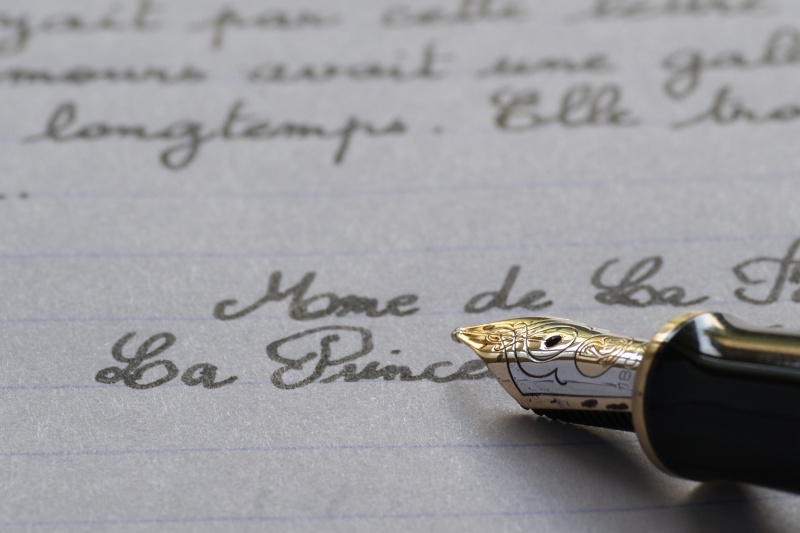 yait par cette lettre
mours avait une gal
longtemps. Elle tro
Mme de La F
La Prince